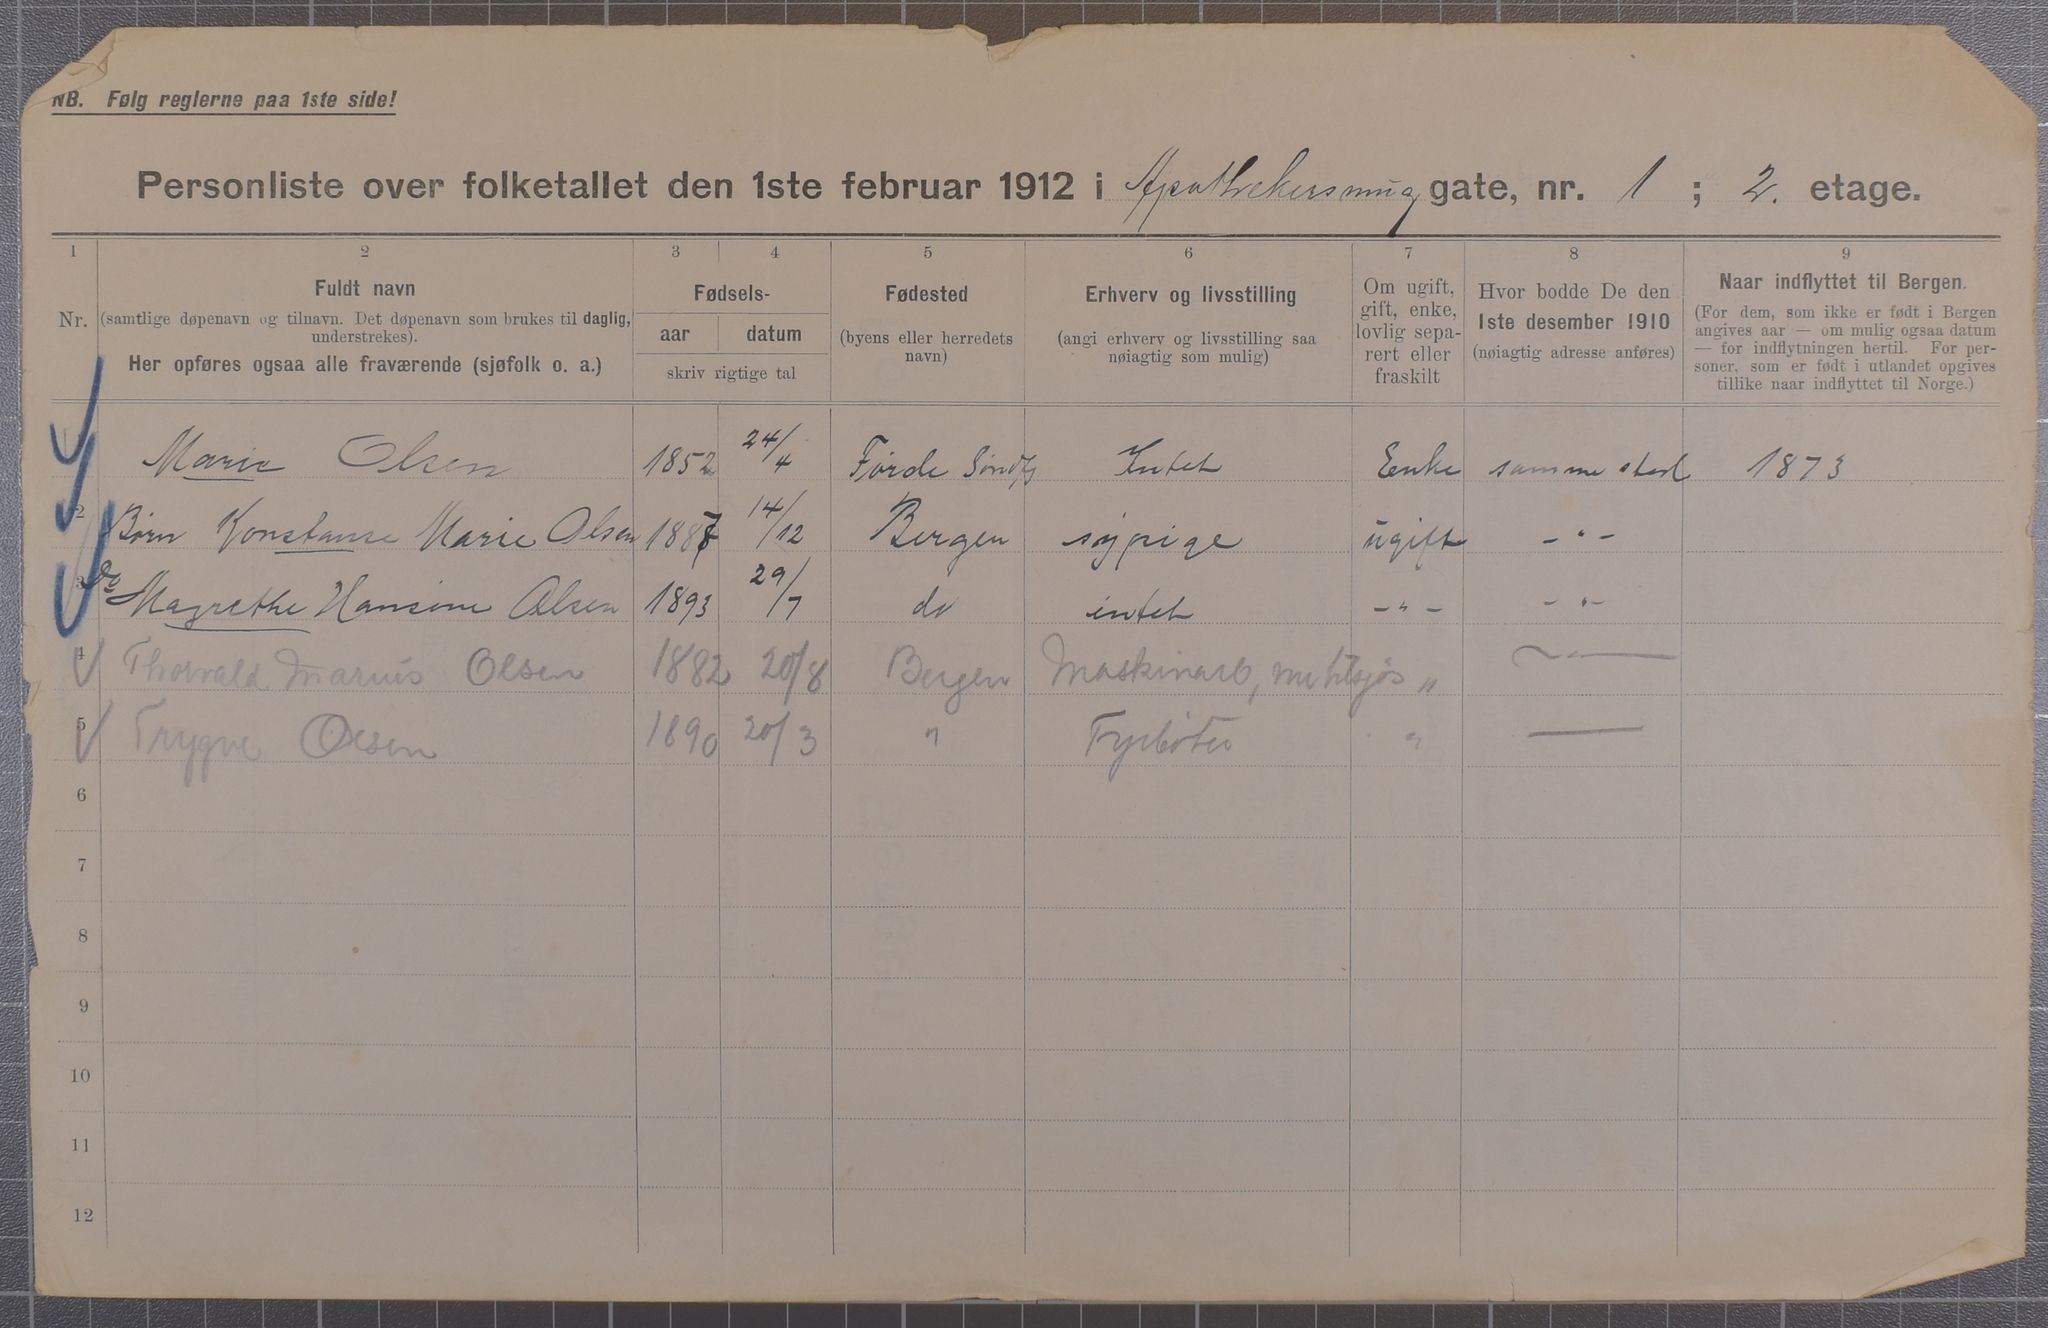 NB. Følg reglerne paa 1ste side!
Personliste over folketallet den 1ste februar 1912 i Apothekersmug gate, nr. 1 ; 2. etage.
1 2 3 4 5 6 7 8 9
Nr.
Fuldt navn
(samtlige døpenavn og tilnavn. Det døpenavn som brukes til daglig,
understrekes).
Her opføres ogsaa alle fraværende (sjøfolk o. a.)
Fødsels-
aar datum
skriv rigtige tal
Fødested
(byens eller herredets
navn)
Erhverv og livsstilling
(angi erhverv og livsstilling saa
nøiagtig som mulig)
Om ugift,
gift, enke,
lovlig sepa-
rert eller
fraskilt
Hvor bodde De den
1ste desember 1910
(nøiagtig adresse anføres)
Naar indflyttet til Bergen.
(For dem, som ikke er født i Bergen
angives aar — om mulig ogsaa datum
— for indflytningen hertil. For per-
soner, som er født i utlandet opgives
tillike naar indflyttet til Norge.)
1 Marie Olsen 1852 24/4 Førde Søndfj Intet Enke samme sted 1873
2 Børn Konstanse Marie Olsen 1887 14/12 Bergen sypige ugift - " -
3 do Magrethe Hansine Olsen 1893 29/7 do intet - " - - " -
4 Thorvald Marius Olsen 1882 20/8 Bergen Maskinarb, "
5 Trygve Olsen 1890 20/3 " Fyrbøter "
6
7
8
9
10
11
12